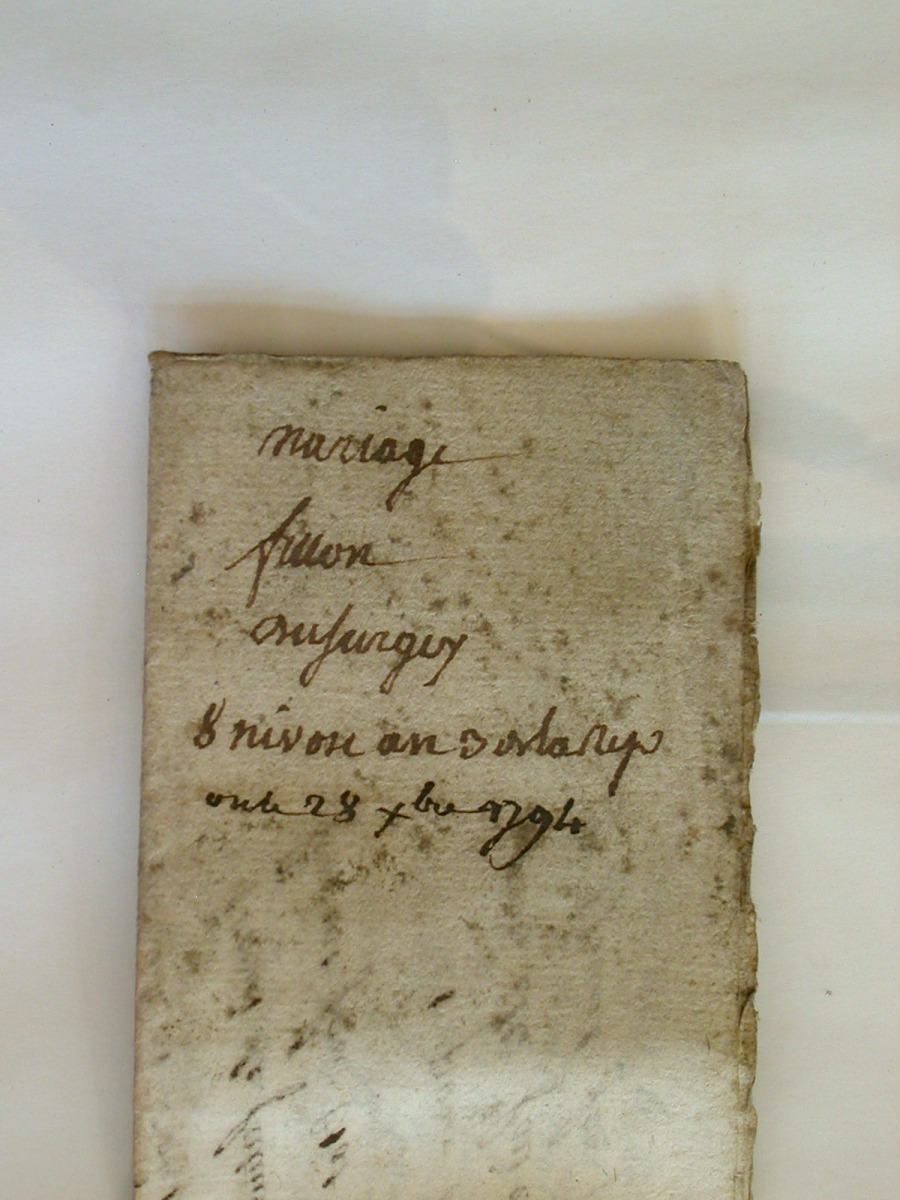 mariage
fillon
8 nivose an 3 de la rep
ou le 28 xbre 1794